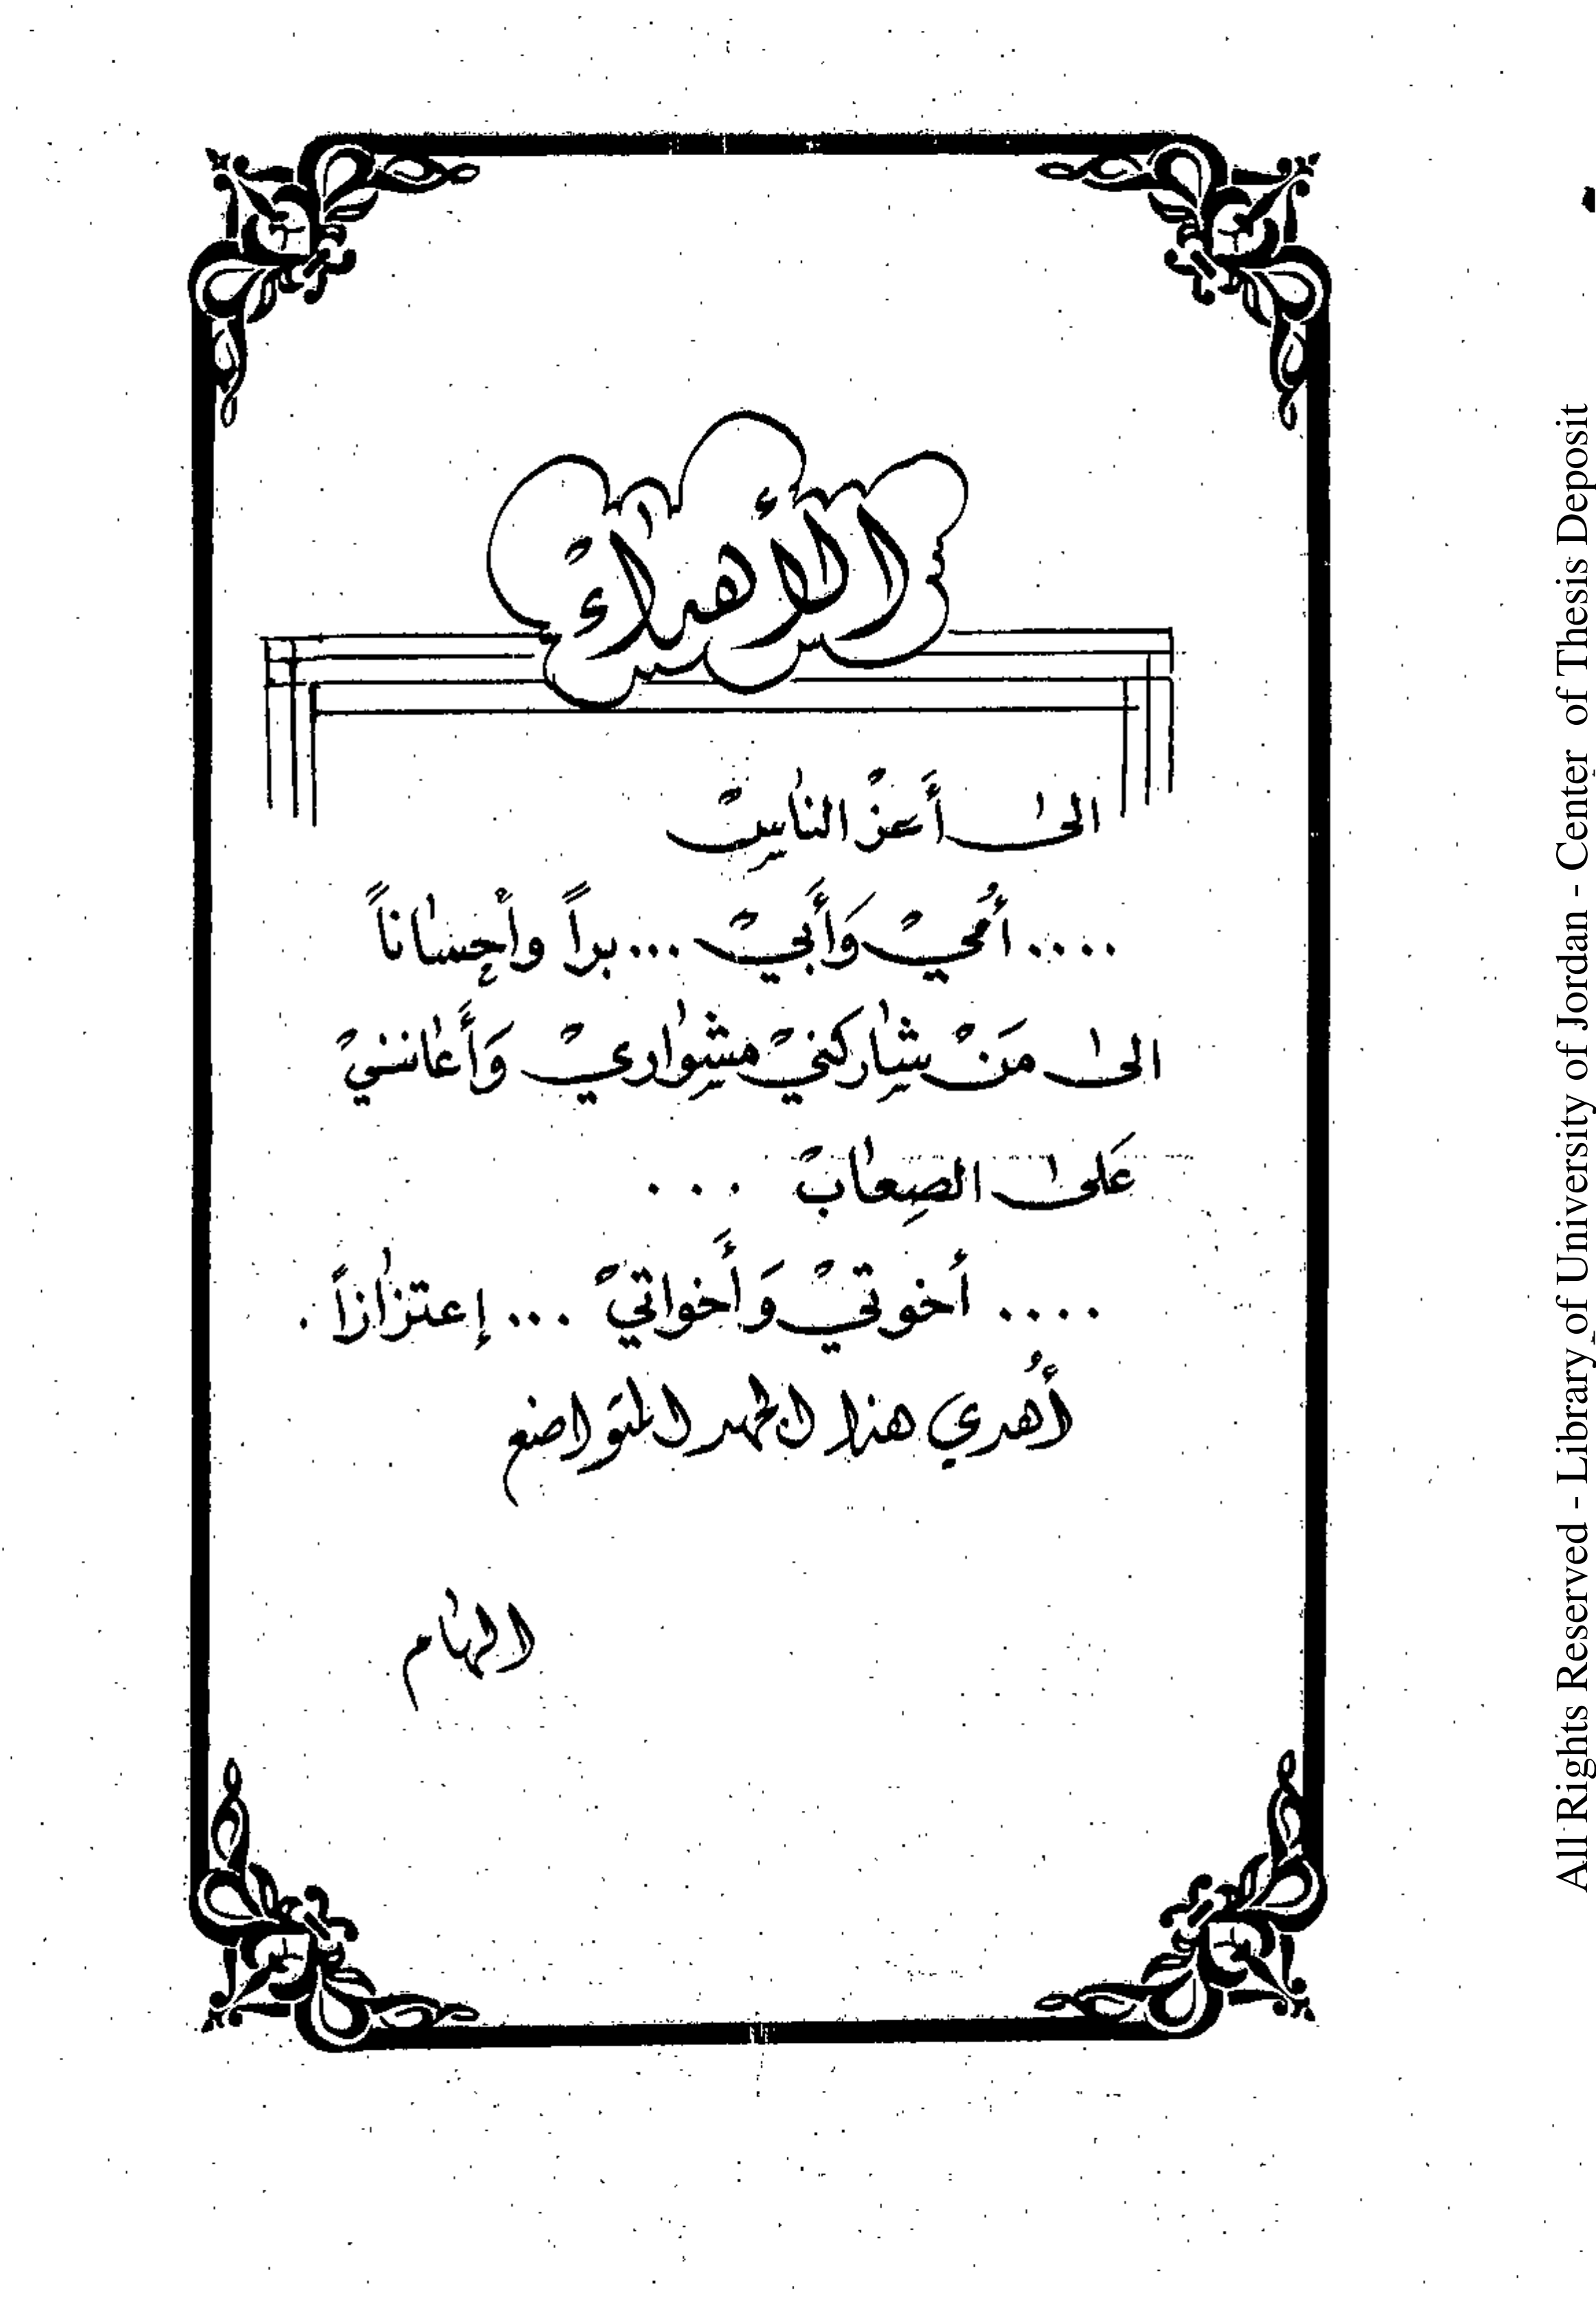 الأهداء
الى أعز الناس
.... أُمي وَأَبي ... براً وأحساناً
الى مَنْ شاركني مشواري وَأَعانني
عَلى الصِعابْ ...
.... أخوتي وَأَخواتي ... إعتزازاً .
أُهدي هذا الجهد المتواضع
الهام
All Rights Reserved - Library of University of Jordan - Center of Thesis Deposit